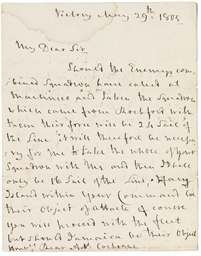 Victory May 29th 1805
My Dear Sir
Should the Enemys com
bined Squadron have called at
Martinico and taken the Squadron
which came from Rochfort with
them their force will be 24 Sail of
the Line, it will therefore be necessa
ry for me to take the whole of your
Squadron with me and then I shall
only be 16 Sail of the Line, if any
Island within Your Command be
their Object of attack of course
You will proceed with the fleet
but should Jamaica be their Object
Honble Rear Adl Cochrane